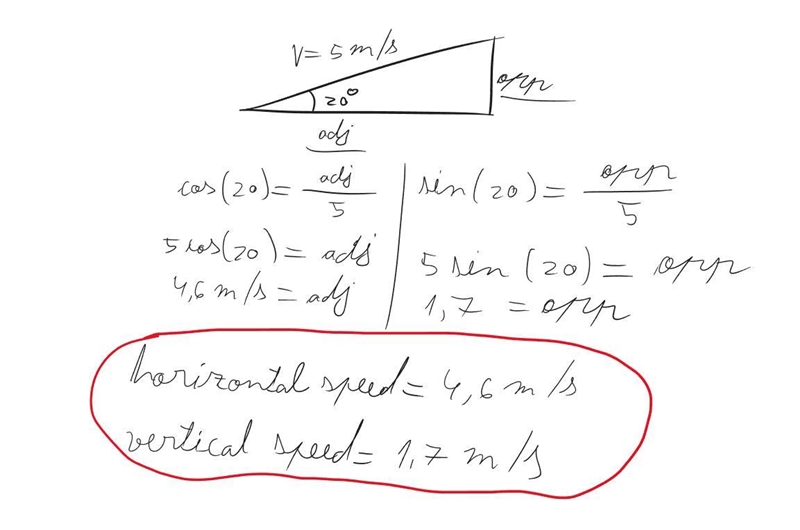 V = 5 m/s
20°
opp
adj
cos(20) = adj/5
5 cos(20) = adj
4,6 m/s = adj
sin(20) = opp/5
5 sin (20) = opp
1,7 = opp
horizontal speed = 4,6 m/s
vertical speed = 1,7 m/s